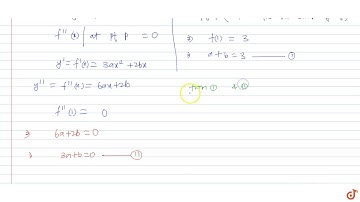 f''(x) | at pt p = 0
y' = f'(x) = 3ax² + 2bx
y'' = f''(x) = 6ax + 2b
f''(1) = 0
⇒ 6a + 2b = 0
⇒ 3a + b = 0 —— (11)
⇒ f(1) = 3
⇒ a + b = 3 —— (1)
from (1) & (11)